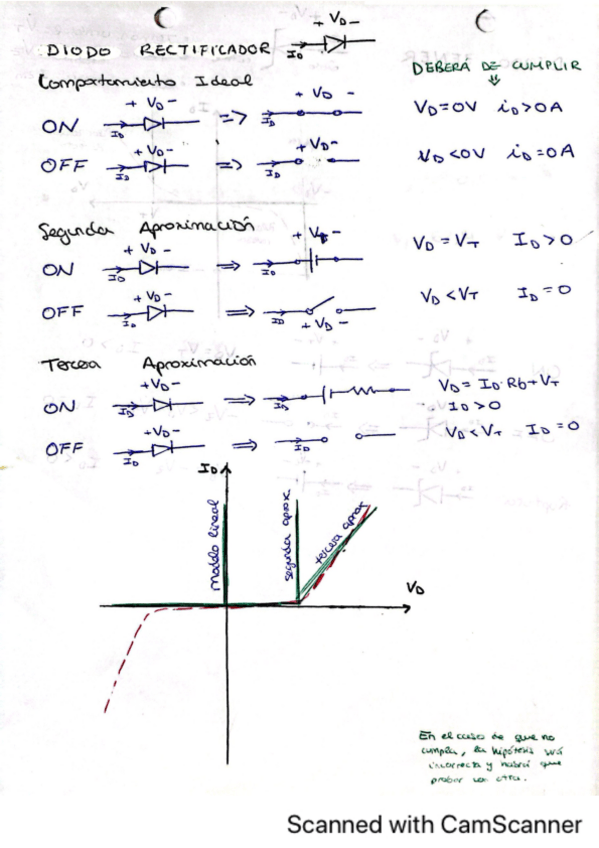 DIODO RECTIFICADOR + VD - ID
DEBERÁ DE CUMPLIR
Comportamiento Ideal
ON + VD - ID => + VD - ID VD=0V iD>0A
OFF + VD - ID => + VD - ID VD<0V iD=0A
Segunda Aproximación
ON + VD - ID => + VT - ID VD=VT ID>0
OFF + VD - ID => ID + VD - VD<VT ID=0
Tercera Aproximación
ON +VD- ID => ID VD= ID·Rb+VT
ID>0
OFF +VD- ID => ID VD<VT ID=0
ID
modelo lineal
segunda aprox.
tercera aprox
VD
En el caso de que no
cumpla, la hipótesis será
incorrecta y habrá que
probar con otra.
Scanned with CamScanner